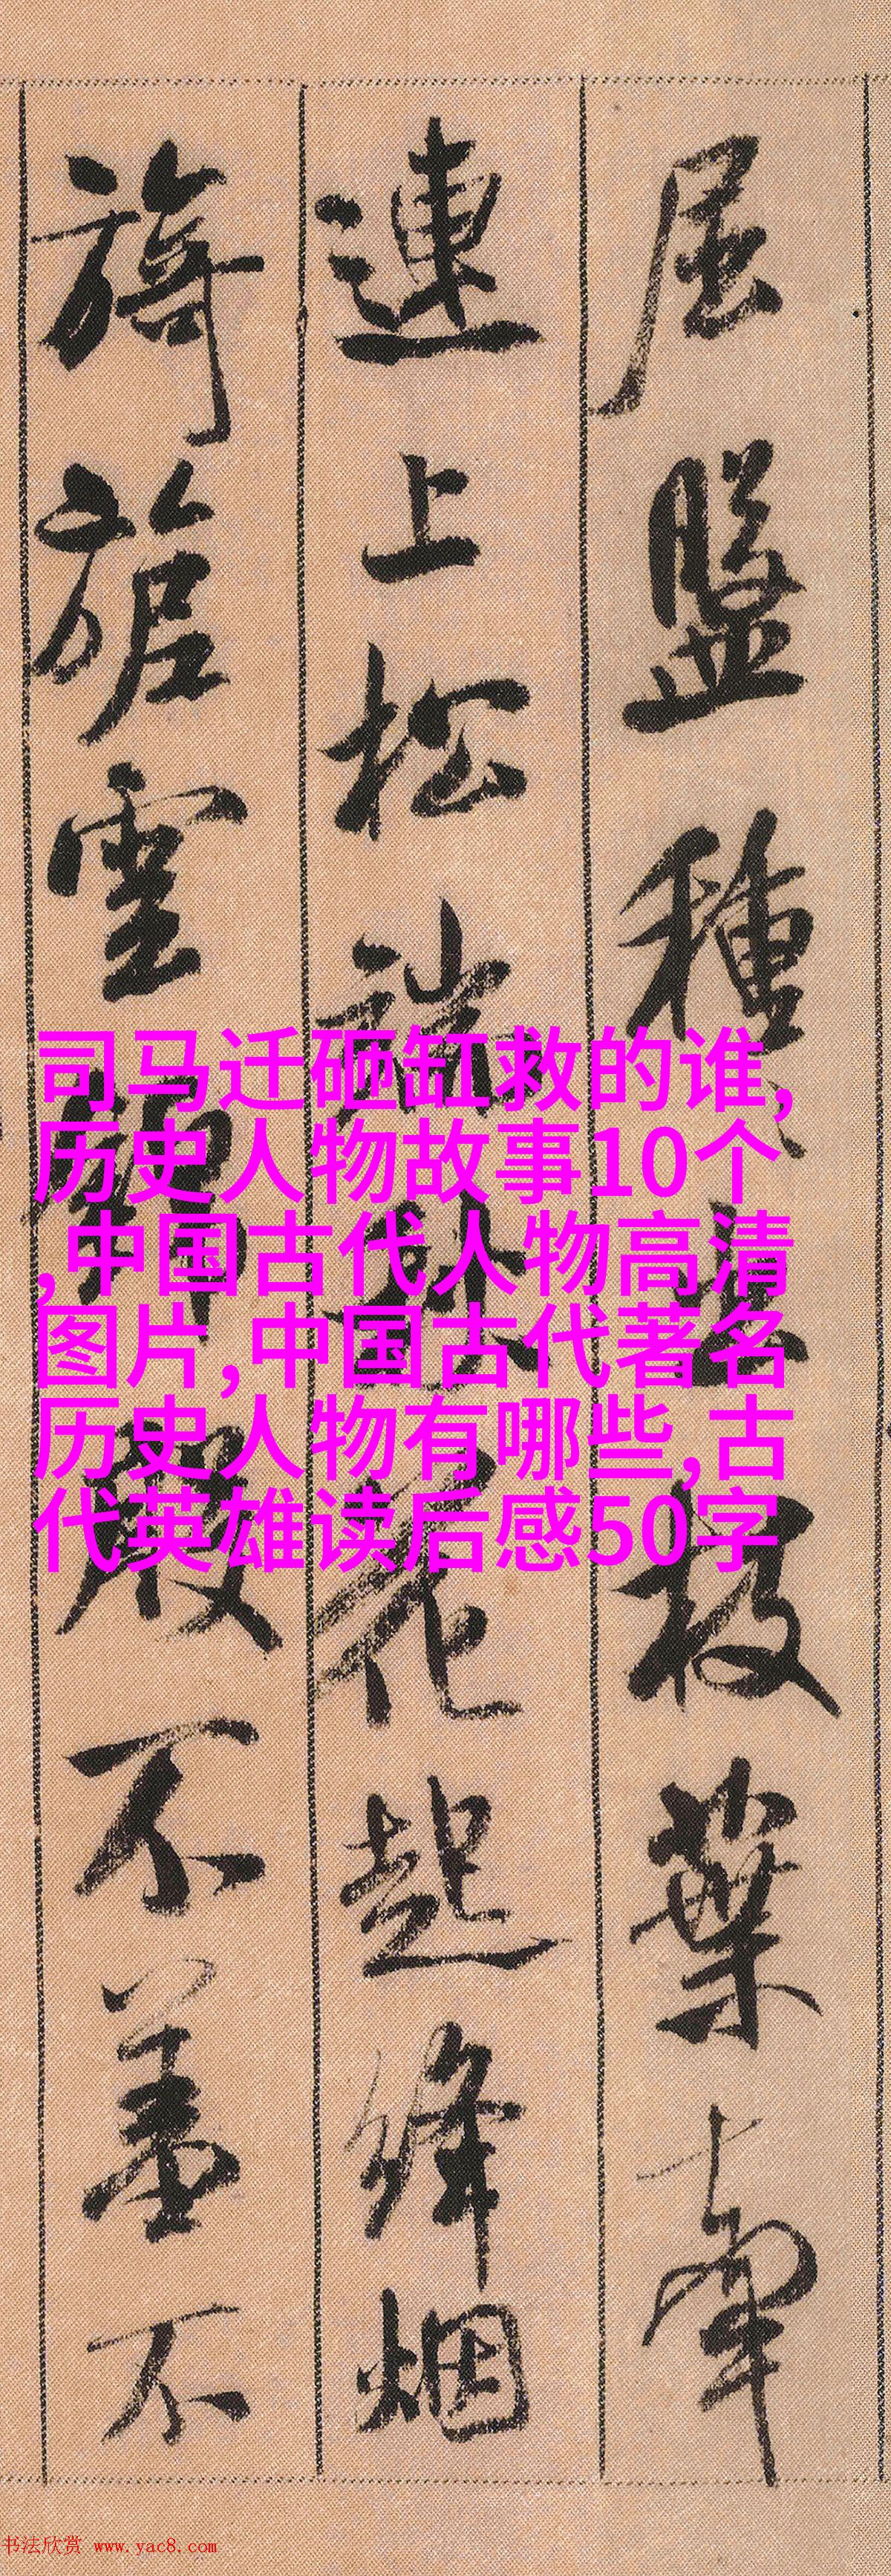 屈盤種、出枝葉牽
連上松端秋花起絳烟
旖旎雲錦殷不羞不
司马迁砸缸救的谁,
历史人物故事10个
,中国古代人物高清
图片,中国古代著名
历史人物有哪些,古
代英雄读后感50字
书法欣赏 www.yac8.com